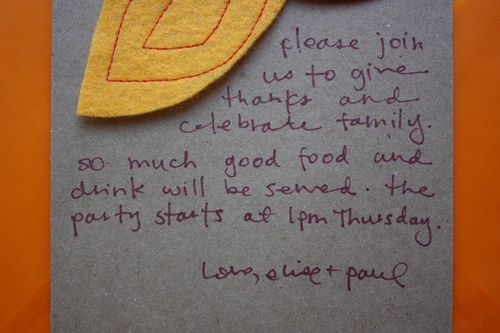 please join
us to give
thanks and
celebrate family.
so much good food and
drink will be served. the
party starts at 1pm Thursday.
love, elise + paul